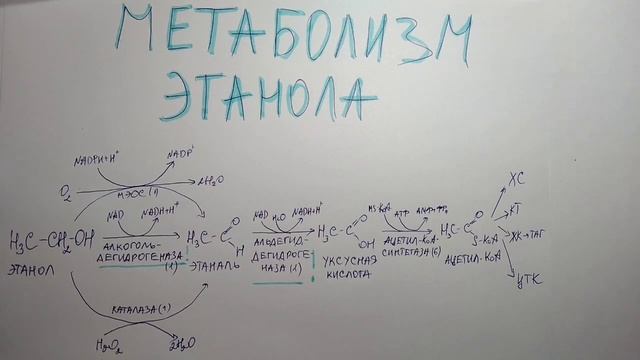 МЕТАБОЛИЗМ
ЭТАНОЛА
NADPH+H⁺ NADP⁺
O₂ МЭОС (1) 2H₂O
H₃C-CH₂-OH
ЭТАНОЛ
NAD NADH+H⁺
АЛКОГОЛЬ-
ДЕГИДРОГЕНАЗА !
(1)
H₃C-C O
H
ЭТАНАЛЬ
NAD H₂O NADH+H⁺
АЛЬДЕГИД-
ДЕГИДРОГЕ-
НАЗА (1) !
H₃C-C O
OH
УКСУСНАЯ
КИСЛОТА
HS-KoA АТР
АЦЕТИЛ-KoA-
СИНТЕТАЗА (6)
H₃C-C O
S-KoA
АЦЕТИЛ-KoA
ХС
КТ
ЖК→ТАГ
ЦТК
КАТАЛАЗА (1)
H₂O₂ 2H₂O